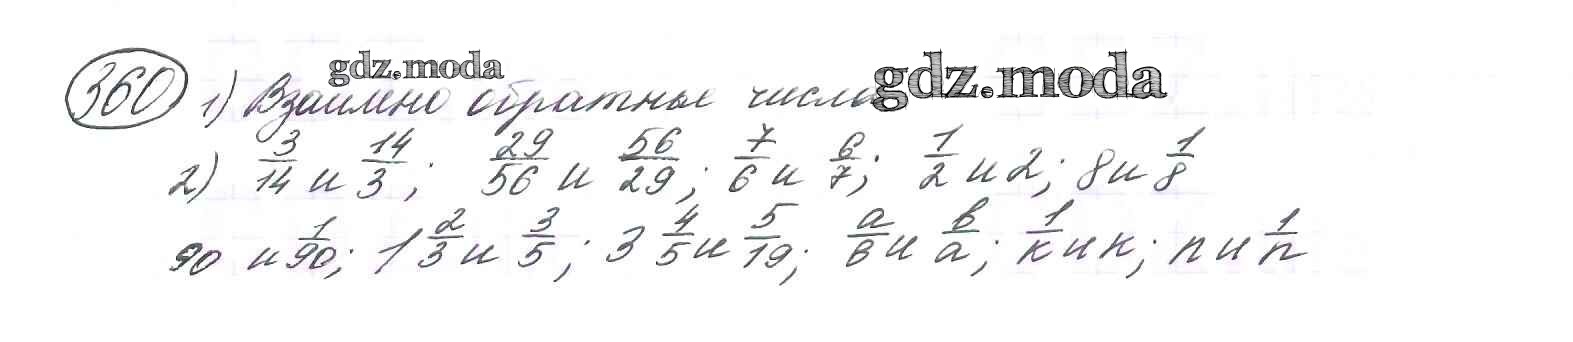 360 1) Взаимно обратные числа
gdz.moda gdz.moda
2) 3/14 и 14/3; 29/56 и 56/29; 7/6 и 6/7; 1/2 и 2; 8 и 1/8
90 и 1/90; 1 2/3 и 3/5; 3 4/5 и 5/19; a/в и в/a; 1/к и к; n и 1/n